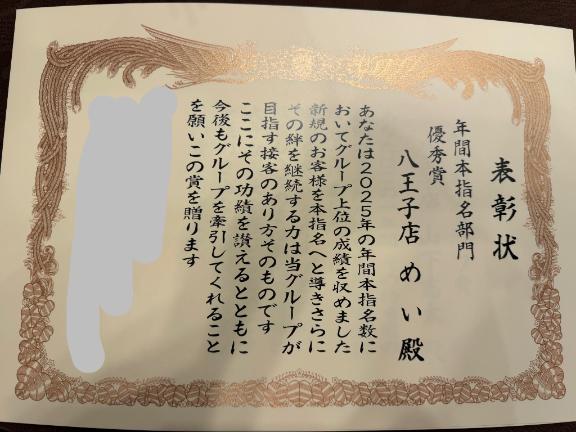 表彰状
年間本指名部門
優秀賞
八王子店 めい 殿
あなたは2025年の年間本指名数に
おいてグループ上位の成績を収めました
新規のお客様を本指名へと導きさらに
その絆を継続する力は当グループが
目指す接客のあり方そのものです
ここにその功績を讃えるとともに
今後もグループを牽引してくれること
を願いこの賞を贈ります